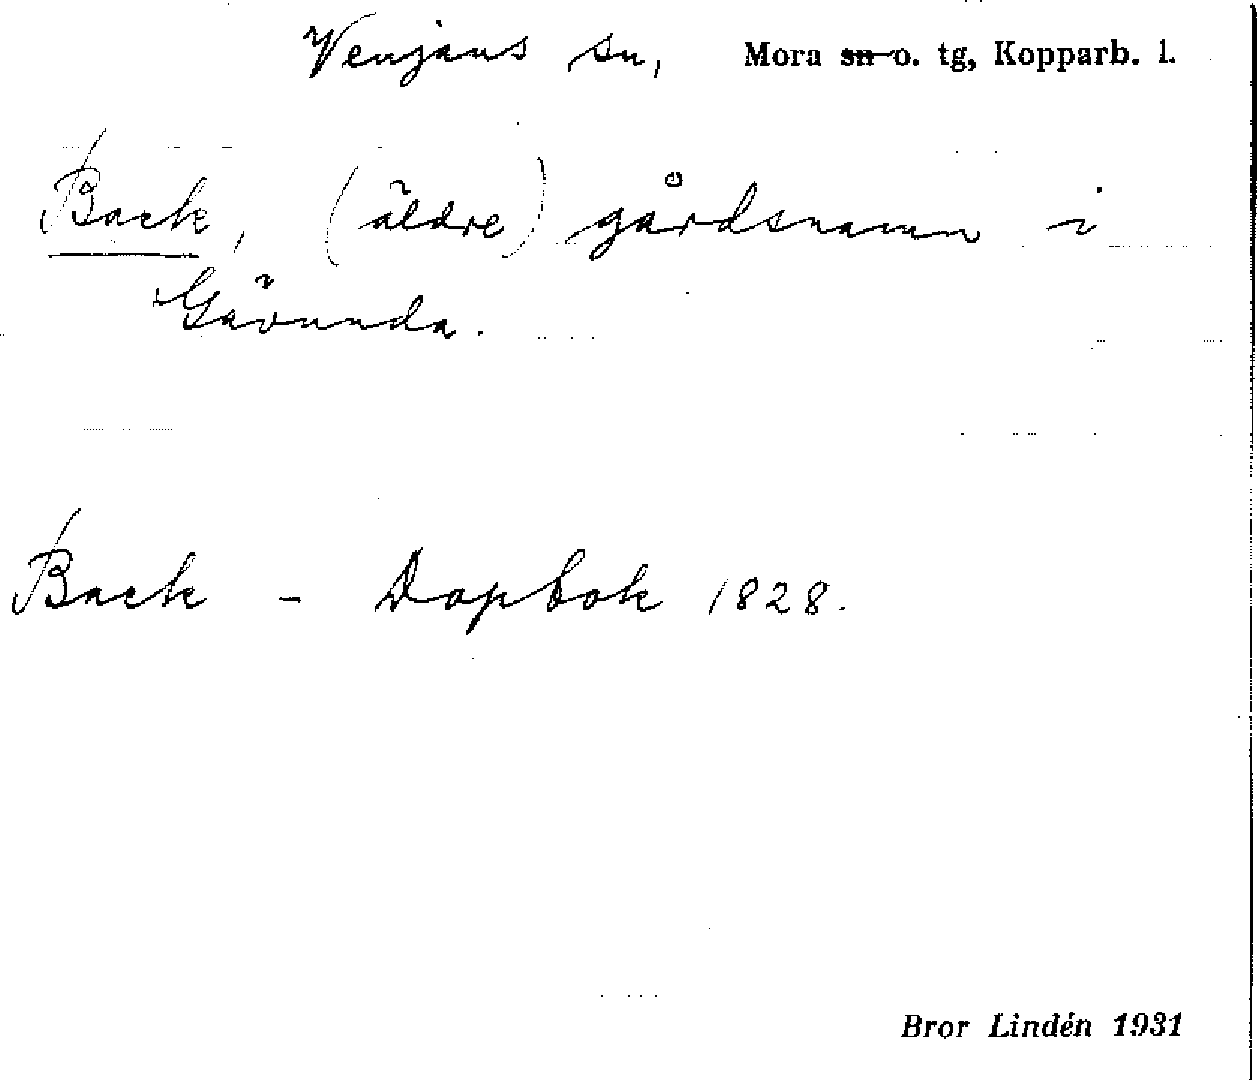 Venjans sn, Mora sn o. tg, Kopparb. l.
Back, (äldre) gårdsnamn i
Gävunda.
Back - Dopbok 1828.
Bror Lindén 1931